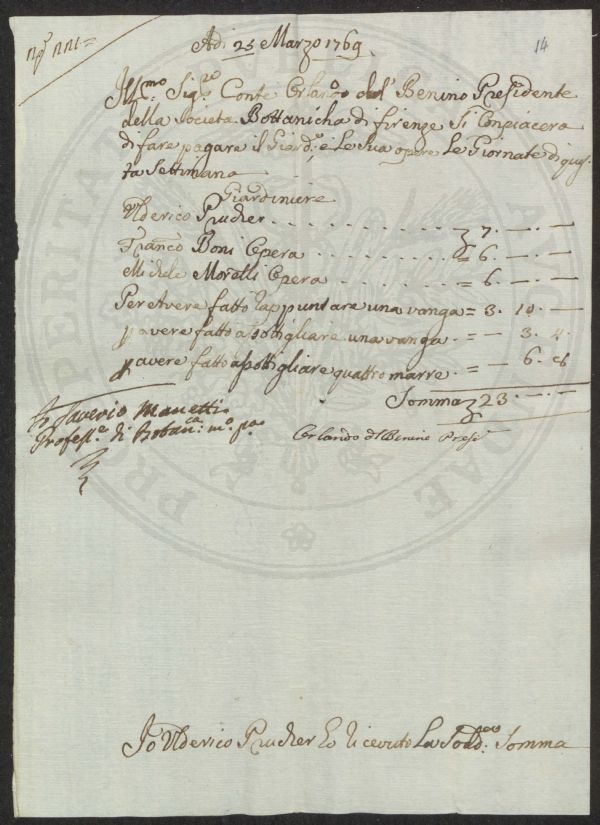 Adi 25 Marzo 1769.
14
Ill:mo Sig:re Conte Orlando del Benino Presidente
della Societa Bottanicha di firenze Si Conpiacera
di fare pagare il Giard:e, e Le Sua opere Le Giornate di ques-
ta Settimana
Giardiniere
Ulderico Prucher . . . . 7. — . —
Franco Boni Opera . . . . = 6. — . —
Michele Morelli Opera . . . . = 6. — . —
Per Avere fatto rappuntare una vanga = 3. 10 . —
p avere fatto asottigliare una vanga . = — 3. 4.
p avere fatto asottigliare quattro marre = — 6. 8
Somma 23 . — . —
Saverio Manetti
Profess:re di Botan:ca m:o p:a
Orlando del Benino Presid:
Io Ulderico Prucher Ho Ricevuto La Sodd: Somma
PERITAT